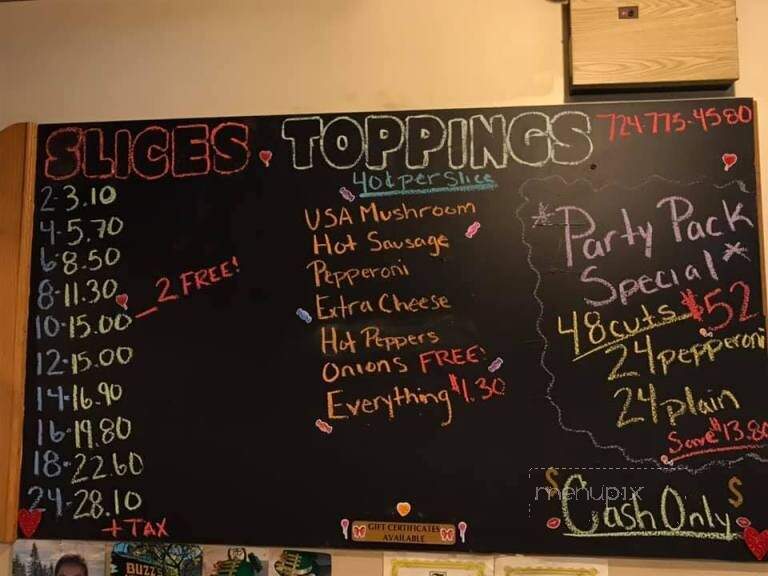 SLICES
2-3.10
4-5.70
6-8.50
8-11.30
10-15.00
2 FREE!
12-15.00
14-16.90
16-19.80
18-22.60
24-28.10
+ TAX
TOPPINGS
40¢ per slice
USA Mushroom
Hot Sausage
Pepperoni
Extra Cheese
Hot Peppers
Onions FREE!
Everything $1.30
GIFT CERTIFICATES
AVAILABLE
724-775-4580
*Party Pack
Special*
48 cuts $52
24 pepperoni
24 plain
Save $13.80
menupix
$Cash Only$
BUZZ